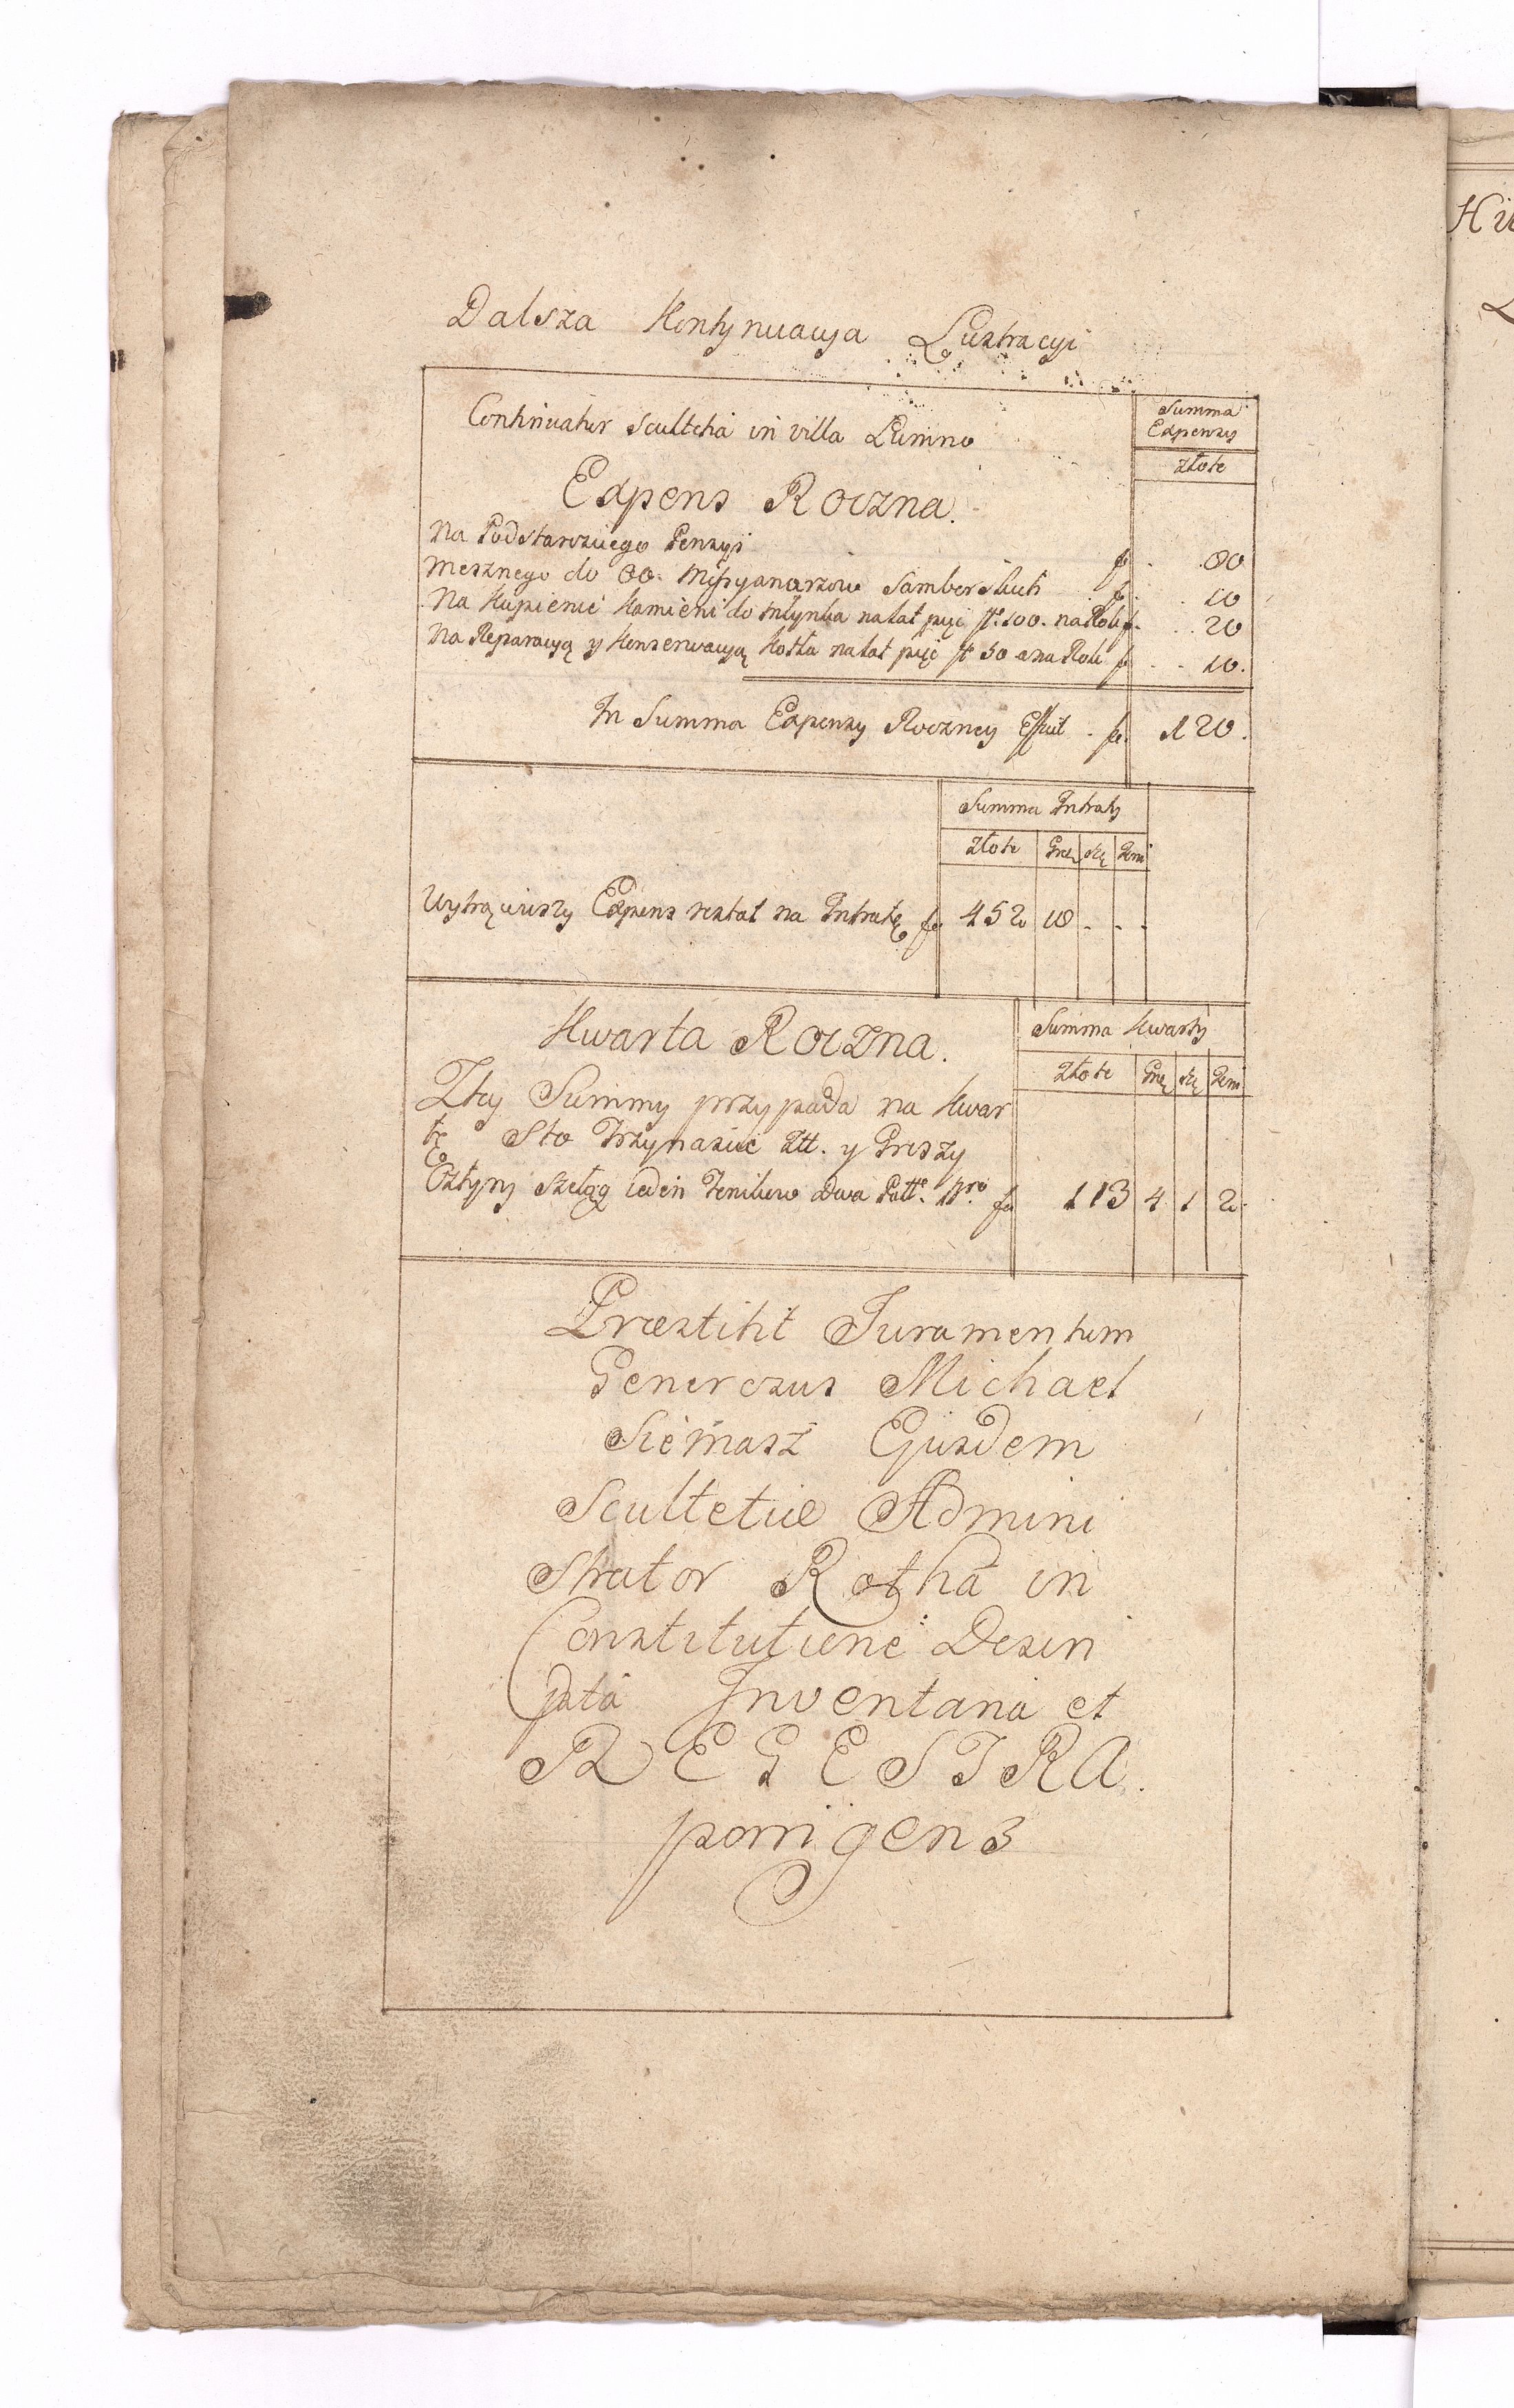 Dalsza Kontynuacya Lustracyi
Continuatur Scultetia in villa Łumno
Summa
Expensy
Złote
Expens Roczna.
Na Podstarościego Pensyi f. 80
Mesznego do OO. Missyonarzow Samborskich f. 10
Na Kupienie Kamieni do Młynka na lat pięć fl. 100. na Rok f. 20
Na Reparacyą y Konserwacyą Kotła na lat pięć fl 50 a na Rok f 10.
In Summa Expensy Roczney Efficit f. 120.
Summa Intraty
Złote Gr. Szę Deni
Wytrąciwszy Expens restat na Intratę f. 452 18 - - -
Kwarta Roczna.
Summa Kwarty
Złote Gr. Szę Deni
Z tey Summy przypada na Kwar
tę Sto Trzynaście Złł. y Groszy
Cztyry Szeląg ieden Denikow dwa f. 113 4 1 2
Præstitit Juramentum
Generosus Michael
Siemasz Ejusdem
Scultetiæ Admini
strator Rotha in
Constitutione Descri
pta Inventaria et
REGESTRA.
porrigens
Hi